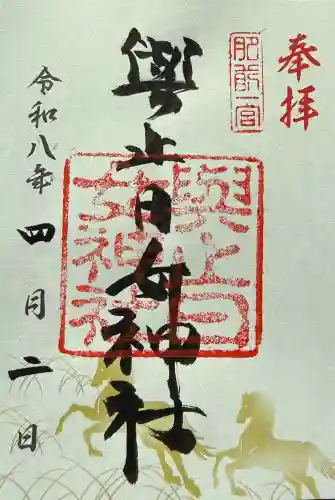 奉拝
肥前一宮
與止日女神社
與止日女神社
令和八年四月二日